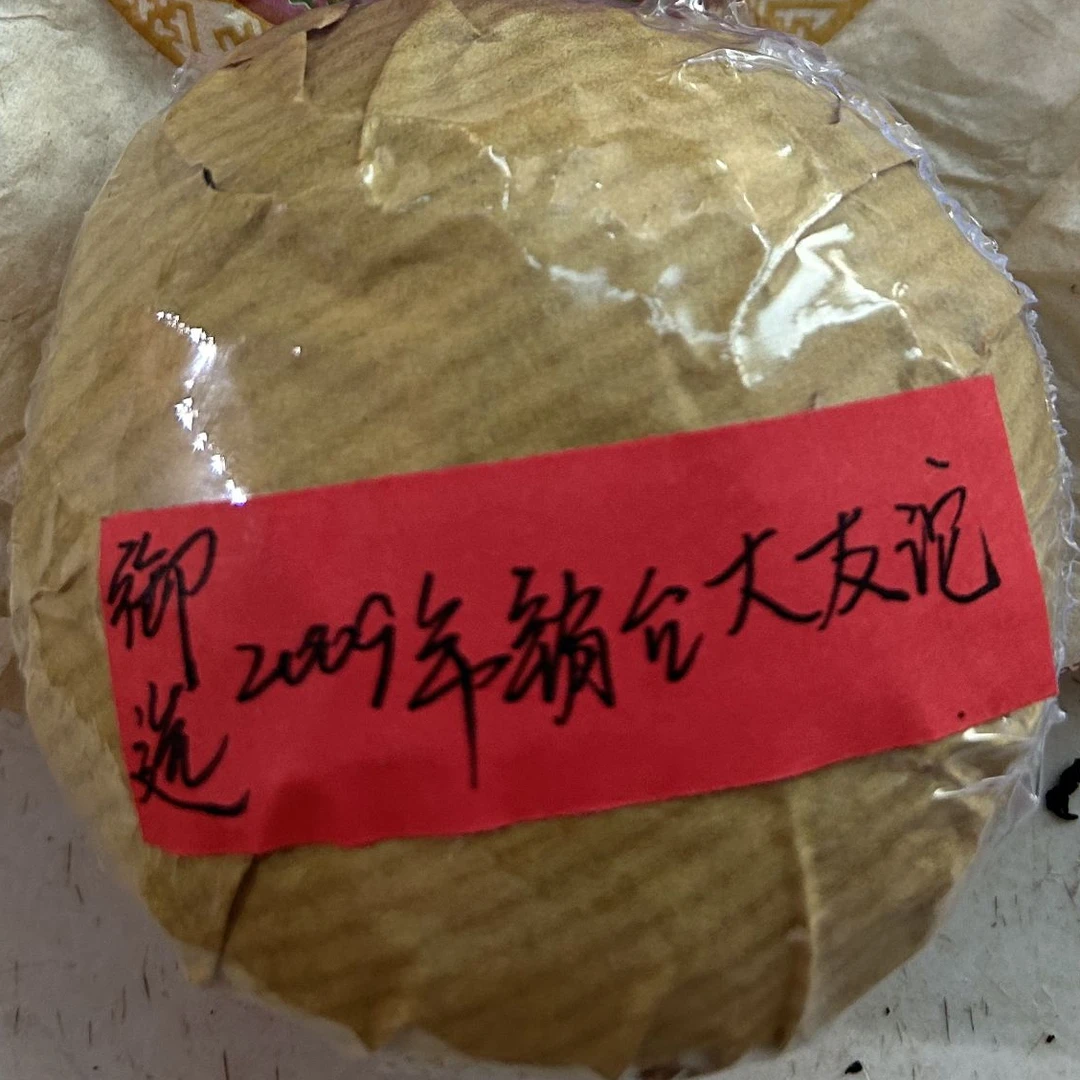 御选
2009年销台大友沱